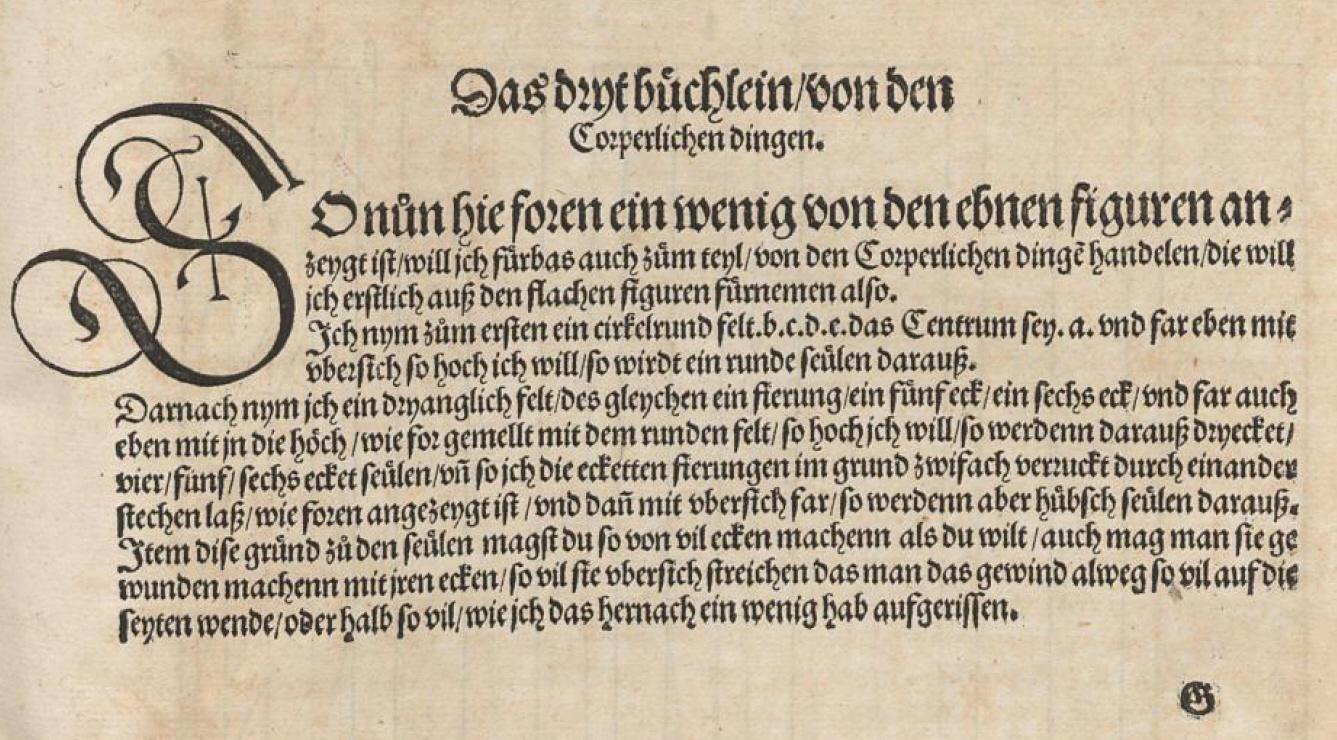 Das dryt büchlein/von den
Corperlichen dingen.
SO nůn hie foren ein wenig von den ebnen figuren an⸗
zeygt ist/will jch fürbas auch zům teyl/von den Corperlichen dingẽ handelen/die will
jch erstlich auß den flachen figuren fürnemen also.
Jch nym zům ersten ein cirkelrund felt.b.c.d.e.das Centrum sey.a.vnd far eben mit
vbersich so hoch ich will/so wirdt ein runde seülen darauß.
Darnach nym jch ein dryanglich felt/des gleychen ein fierung/ein fünf eck/ein sechs eck/vnd far auch
eben mit jn die höch/wie for gemellt mit dem runden felt/so hoch jch will/so werdenn darauß dryecket/
vier/fünf/sechs ecket seülen/vñ so jch die ecketten fierungen im grund zwifach verruckt durch einander
stechen laß/wie foren angezeygt ist/vnd dañ mit vbersich far/so werdenn aber hübsch seülen darauß.
Jtem dise gründ zů den seülen magst du so von vil ecken machenn als du wilt/auch mag man sie ge
wunden machenn mit jren ecken/so vil sie vbersich streichen das man das gewind alweg so vil auf die
seyten wende/oder halb so vil/wie jch das hernach ein wenig hab aufgerissen.
G